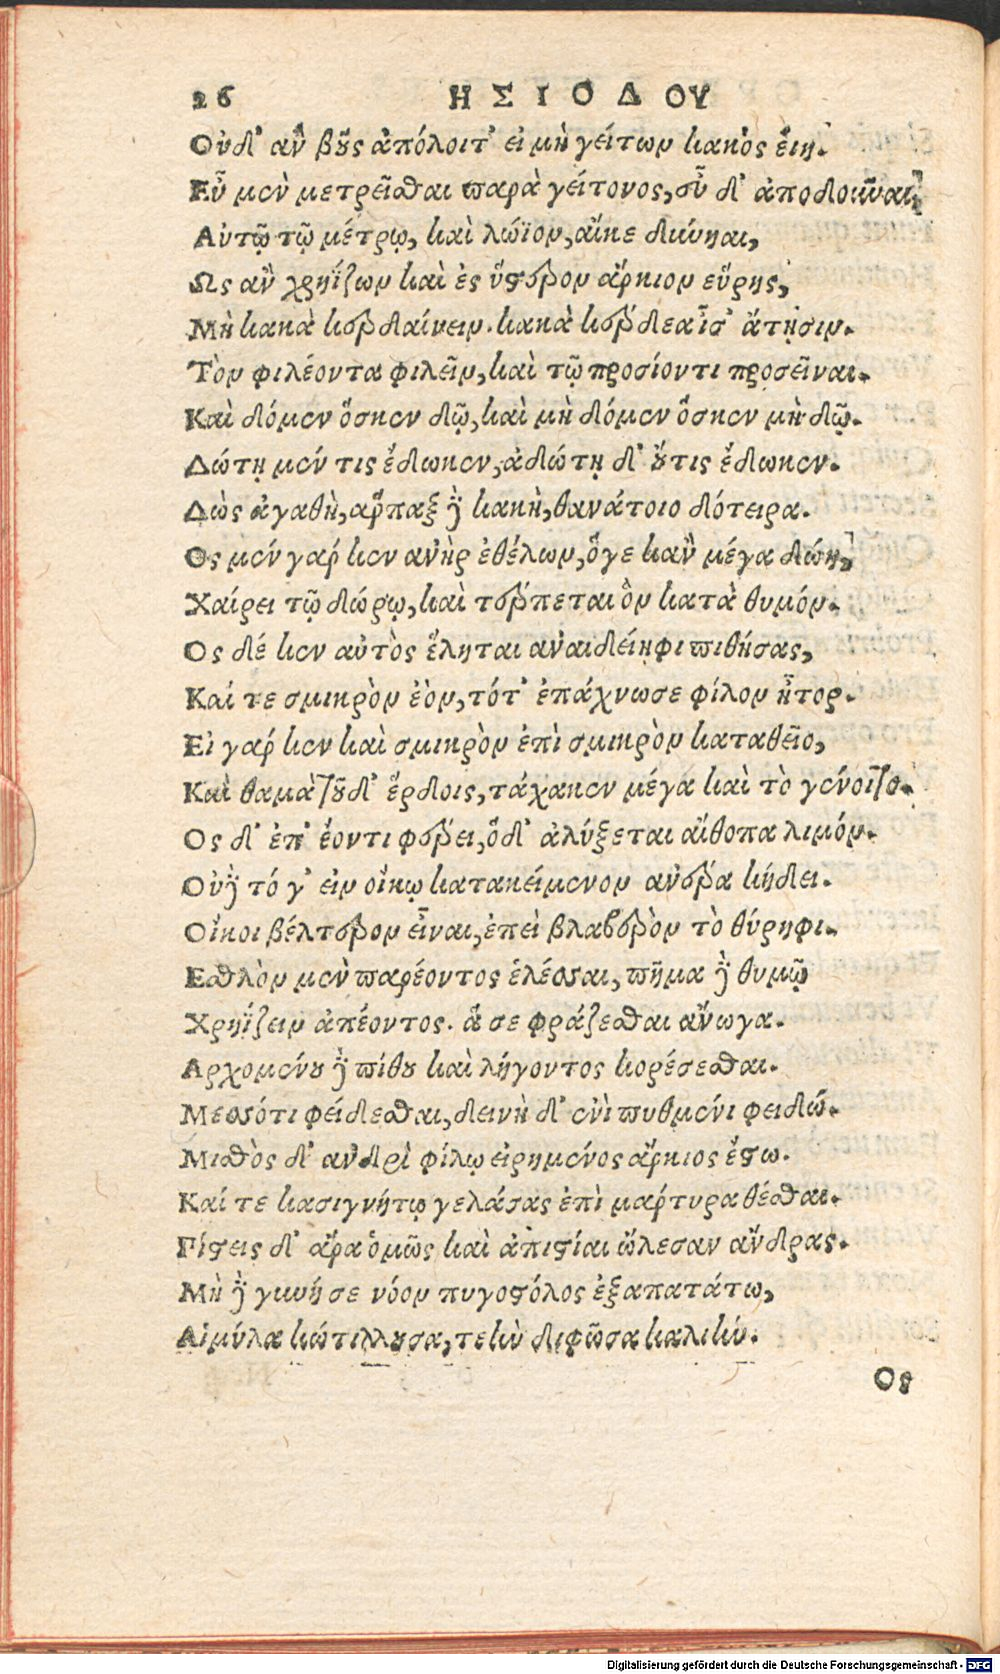 26 ΗΣΙΟΔΟΥ
Οὐδ' ἂν βοῦς ἀπόλοιτ' εἰ μὴ γείτων κακὸς εἴη.
Εὖ μὲν μετρεῖσθαι παρὰ γείτονος, εὖ δ' ἀποδοῦναι,
Αὐτῷ τῷ μέτρῳ, καὶ λώϊον, αἴκε δύνηαι,
Ως ἂν χρηΐζων καὶ ἐς ὕστερον ἄρκιον εὕρης,
Μὴ κακὰ κερδαίνειν. κακὰ κέρδεα ἶσ' ἄτησιν.
Τὸν φιλέοντα φιλεῖν, καὶ τῷ προσίοντι προσεῖναι.
Καὶ δόμεν ὅσκεν δῷ, καὶ μὴ δόμεν ὅσκεν μὴ δῷ.
Δώτῃ μέν τις ἔδωκεν, ἀδώτῃ δ' οὔτις ἔδωκεν.
Δὼς ἀγαθὴ, ἅρπαξ δὲ κακὴ, θανάτοιο δότειρα.
Ος μέν γάρ κεν ἀνὴρ ἐθέλων, ὅγε κἂν μέγα δώη,
Χαίρει τῷ δώρῳ, καὶ τέρπεται ὃν κατὰ θυμόν.
Ος δέ κεν αὐτὸς ἕληται ἀναιδείηφι πιθήσας,
Καί τε σμικρὸν ἐὸν, τότ' ἐπάχνωσε φίλον ἦτορ.
Εἰ γάρ κεν καὶ σμικρὸν ἐπὶ σμικρὸν καταθεῖο,
Καὶ θαμὰ τοῦδ' ἔρδοις, τάχακεν μέγα καὶ τὸ γένοιτο.
Ος δ' ἐπ' ἐόντι φέρει, ὅδ' ἀλύξεται αἴθοπα λιμόν.
Οὐδὲ τό γ' εἰν οἴκῳ κατακείμενον ἀνέρα κήδει.
Οἴκοι βέλτερον εἶναι, ἐπεὶ βλαβερὸν τὸ θύρηφι.
Εσθλὸν μὲν παρέοντος ἑλέσθαι, πῆμα δὲ θυμῷ
Χρηΐζειν ἀπέοντος. ἅ σε φράζεσθαι ἄνωγα.
Αρχομένου δὲ πίθου καὶ λήγοντος κορέσεσθαι.
Μεσσότι φείδεσθαι, δεινὴ δ' ἐνὶ πυθμένι φειδώ.
Μισθὸς δ' ἀνδρὶ φίλῳ εἰρημένος ἄρκιος ἔστω.
Καί τε κασιγνήτῳ γελάσας ἐπὶ μαρτυρα θέσθαι.
Πίστεις δ' ἄρα ὁμῶς καὶ ἀπιστίαι ὤλεσαν ἄνδρας.
Μὴ δὲ γυνή σε νόον πυγοστόλος ἐξαπατάτω,
Αἱμύλα κώτιλλουσα, τεὴν διφῶσα καλιήν.
Ος
Digitalisierung gefördert durch die Deutsche Forschungsgemeinschaft - DFG